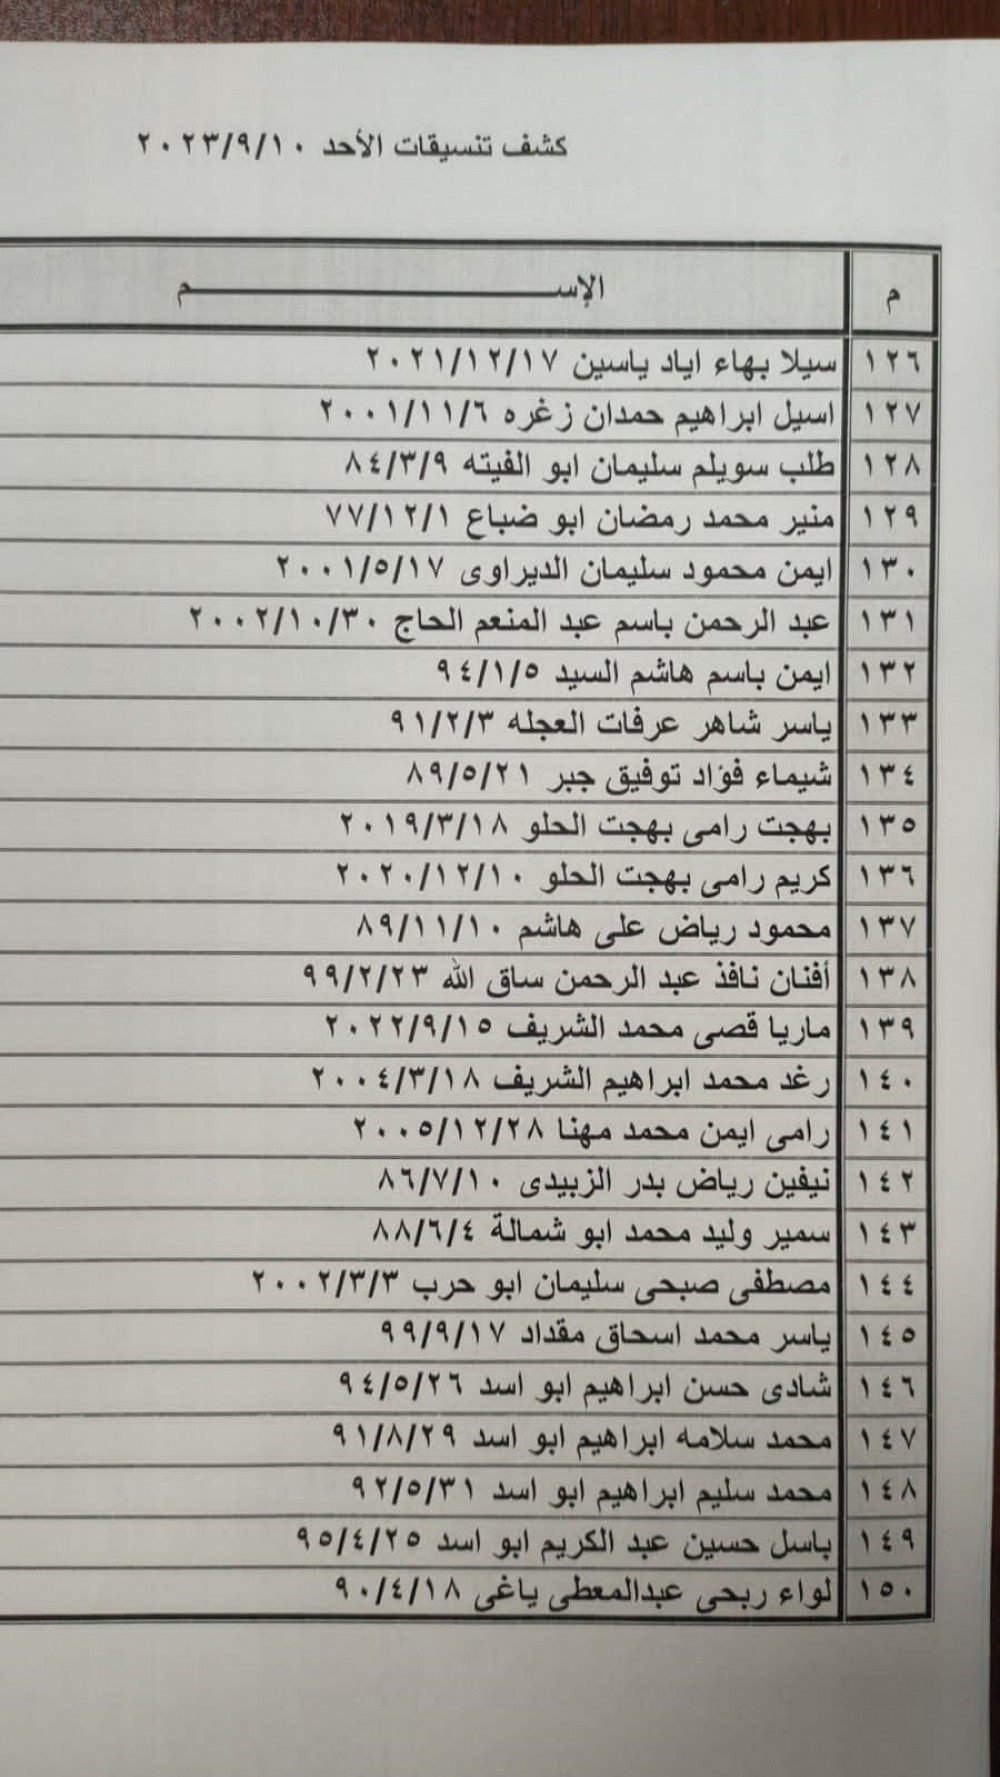 كشف تنسيقات الأحد ٢٠٢٣/٩/١٠
م الإســـــــم
١٢٦ سيلا بهاء اياد ياسين ٢٠٢١/١٢/١٧
١٢٧ اسيل ابراهيم حمدان زغره ٢٠٠١/١١/٦
١٢٨ طلب سويلم سليمان ابو الفيته ٨٤/٣/٩
١٢٩ منير محمد رمضان ابو ضباع ٧٧/١٢/١
١٣٠ ايمن محمود سليمان الديراوى ٢٠٠١/٥/١٧
١٣١ عبد الرحمن باسم عبد المنعم الحاج ٢٠٠٢/١٠/٣٠
١٣٢ ايمن باسم هاشم السيد ٩٤/١/٥
١٣٣ ياسر شاهر عرفات العجله ٩١/٢/٣
١٣٤ شيماء فؤاد توفيق جبر ٨٩/٥/٢١
١٣٥ بهجت رامى بهجت الحلو ٢٠١٩/٣/١٨
١٣٦ كريم رامى بهجت الحلو ٢٠٢٠/١٢/١٠
١٣٧ محمود رياض على هاشم ٨٩/١١/١٠
١٣٨ أفنان نافذ عبد الرحمن ساق الله ٩٩/٢/٢٣
١٣٩ ماريا قصى محمد الشريف ٢٠٢٢/٩/١٥
١٤٠ رغد محمد ابراهيم الشريف ٢٠٠٤/٣/١٨
١٤١ رامى ايمن محمد مهنا ٢٠٠٥/١٢/٢٨
١٤٢ نيفين رياض بدر الزبيدى ٨٦/٧/١٠
١٤٣ سمير وليد محمد ابو شمالة ٨٨/٦/٤
١٤٤ مصطفى صبحى سليمان ابو حرب ٢٠٠٢/٣/٣
١٤٥ ياسر محمد اسحاق مقداد ٩٩/٩/١٧
١٤٦ شادى حسن ابراهيم ابو اسد ٩٤/٥/٢٦
١٤٧ محمد سلامه ابراهيم ابو اسد ٩١/٨/٢٩
١٤٨ محمد سليم ابراهيم ابو اسد ٩٢/٥/٣١
١٤٩ باسل حسين عبد الكريم ابو اسد ٩٥/٤/٢٥
١٥٠ لواء ربحى عبدالمعطى ياغى ٩٠/٤/١٨